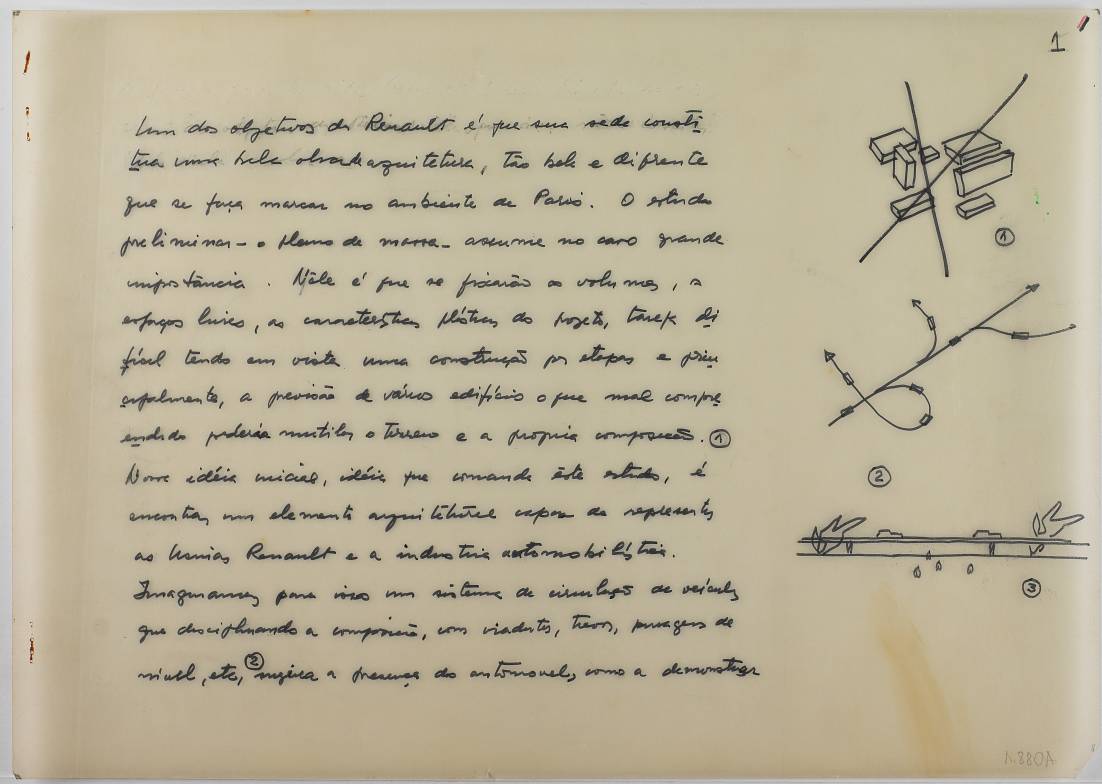 1
Um dos objetivos da Renault é que sua sede consti
tua uma bela obra de arquitetura, tão bela e diferente
que se faça marcar no ambiente de Paris. O estudo
preliminar - o plano de massa - assume no caso grande
importância. Nêle é que se fixarão os volumes, os
espaços livres, as características plásticas do projeto, tarefa di
fícil tendo em vista uma construção por etapas e prin
cipalmente, a previsão de vários edifícios o que mal compre
endido poderia mutilar o terreno e a propria composição. ①
Nossa idéia inicial, idéia que comanda êste estudo, é
encontrar um elemento arquitetural capaz de representar
as Usinas Renault e a industria automobilística.
Imaginamos para isso um sistema de circulação de veículos
que disciplinando a composição, com viadutos, trevos, passagens de
nível, etc, ② sugira a presença do automovel, como a demonstrar
①
②
③
A.880A